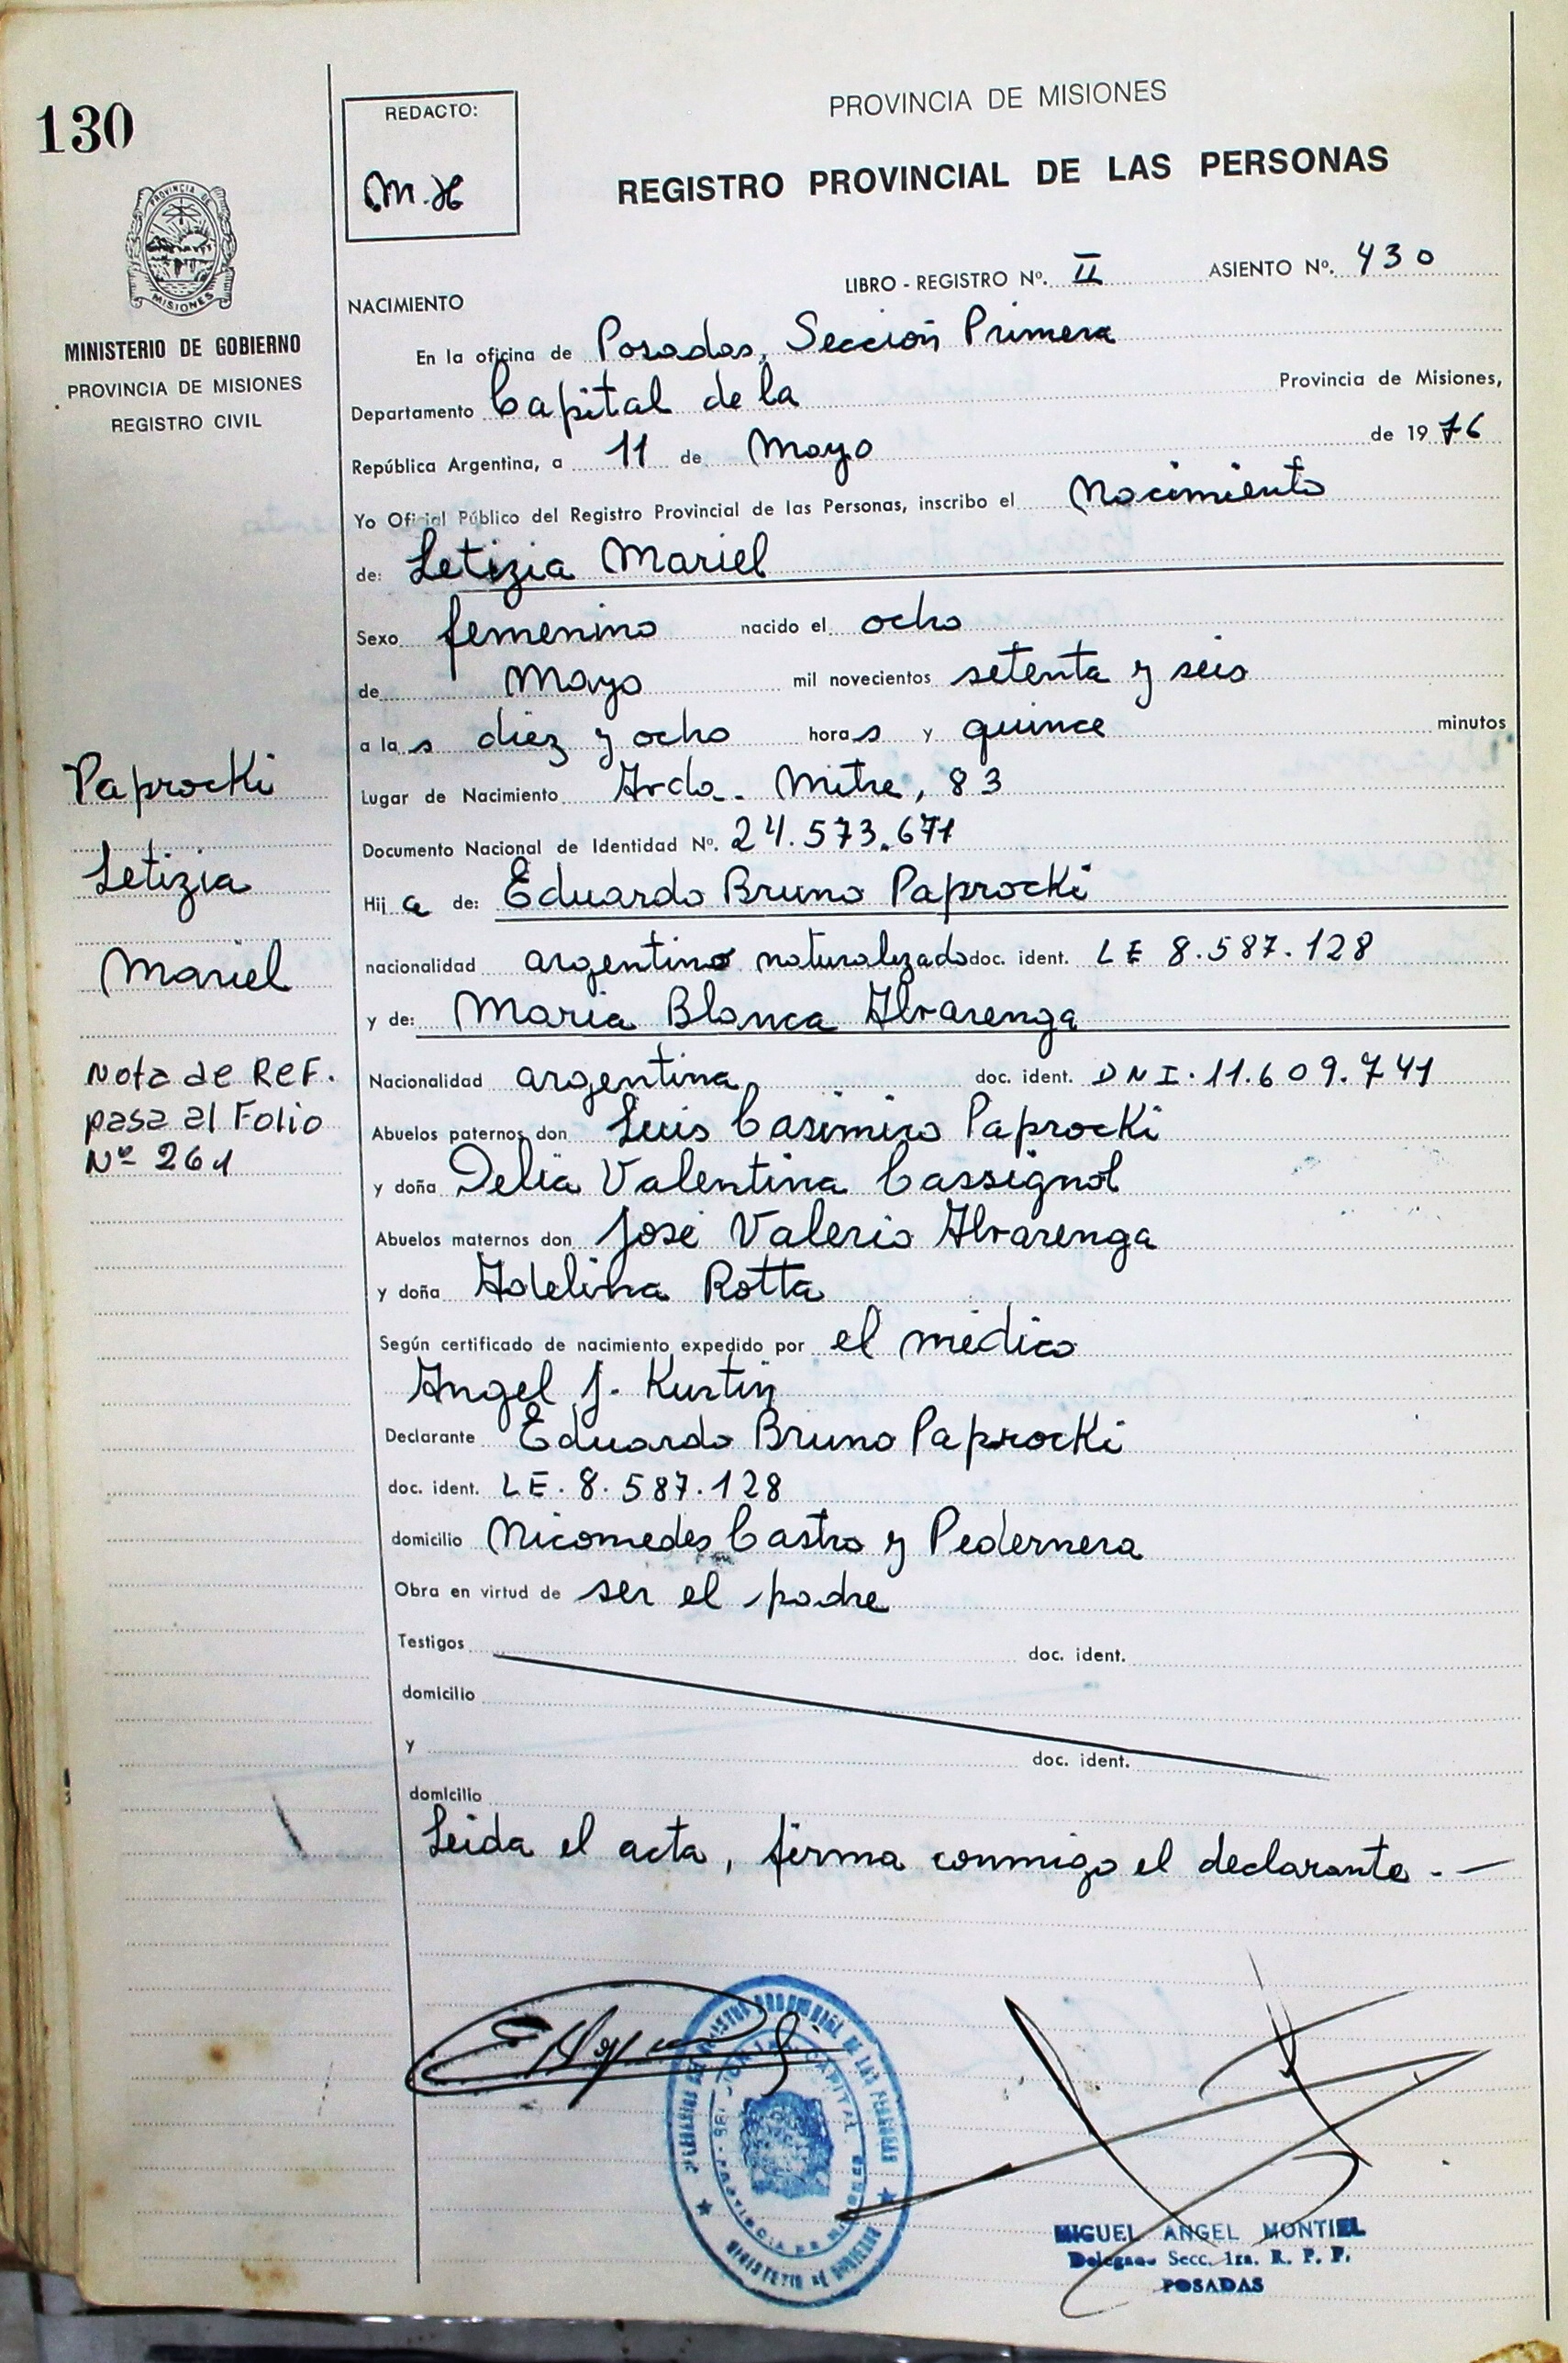 130
REDACTO:
M.H
PROVINCIA DE MISIONES
REGISTRO PROVINCIAL DE LAS PERSONAS
PROVINCIA DE
MISIONES
MINISTERIO DE GOBIERNO
PROVINCIA DE MISIONES
REGISTRO CIVIL
LIBRO - REGISTRO Nº. II ASIENTO Nº. 430
NACIMIENTO
En la oficina de Posadas, Sección Primera
Departamento Capital de la Provincia de Misiones,
República Argentina, a 11 de Mayo de 1976
Yo Oficial Público del Registro Provincial de las Personas, inscribo el Nacimiento
de: Letizia Mariel
Sexo femenino nacido el ocho
de Mayo mil novecientos setenta y seis
a la s diez y ocho hora s y quince minutos
Lugar de Nacimiento Avda. Mitre, 83
Documento Nacional de Identidad Nº. 24.573.671
Hij a de: Eduardo Bruno Paprocki
nacionalidad argentino naturalizado doc. ident. LE 8.587.128
y de: Maria Blanca Alvarenga
Nacionalidad argentina doc. ident. DNI.11.609.741
Abuelos paternos don Luis Casimiro Paprocki
y doña Delia Valentina Cassignol
Abuelos maternos don José Valerio Alvarenga
y doña Adelina Rotta
Según certificado de nacimiento expedido por el médico
Angel J. Kurtin
Declarante Eduardo Bruno Paprocki
doc. ident. LE.8.587.128
domicilio Nicomedes Castro y Pedernera
Obra en virtud de ser el padre
Testigos doc. ident.
domicilio
y doc. ident.
domicilio
Leida el acta, firma conmigo el declarante.-
Paprocki
Letizia
Mariel
Nota de REF.
pasa al Folio
Nº 261
MIGUEL ANGEL MONTIEL
Delegado Secc. 1ra. R. P. P.
POSADAS